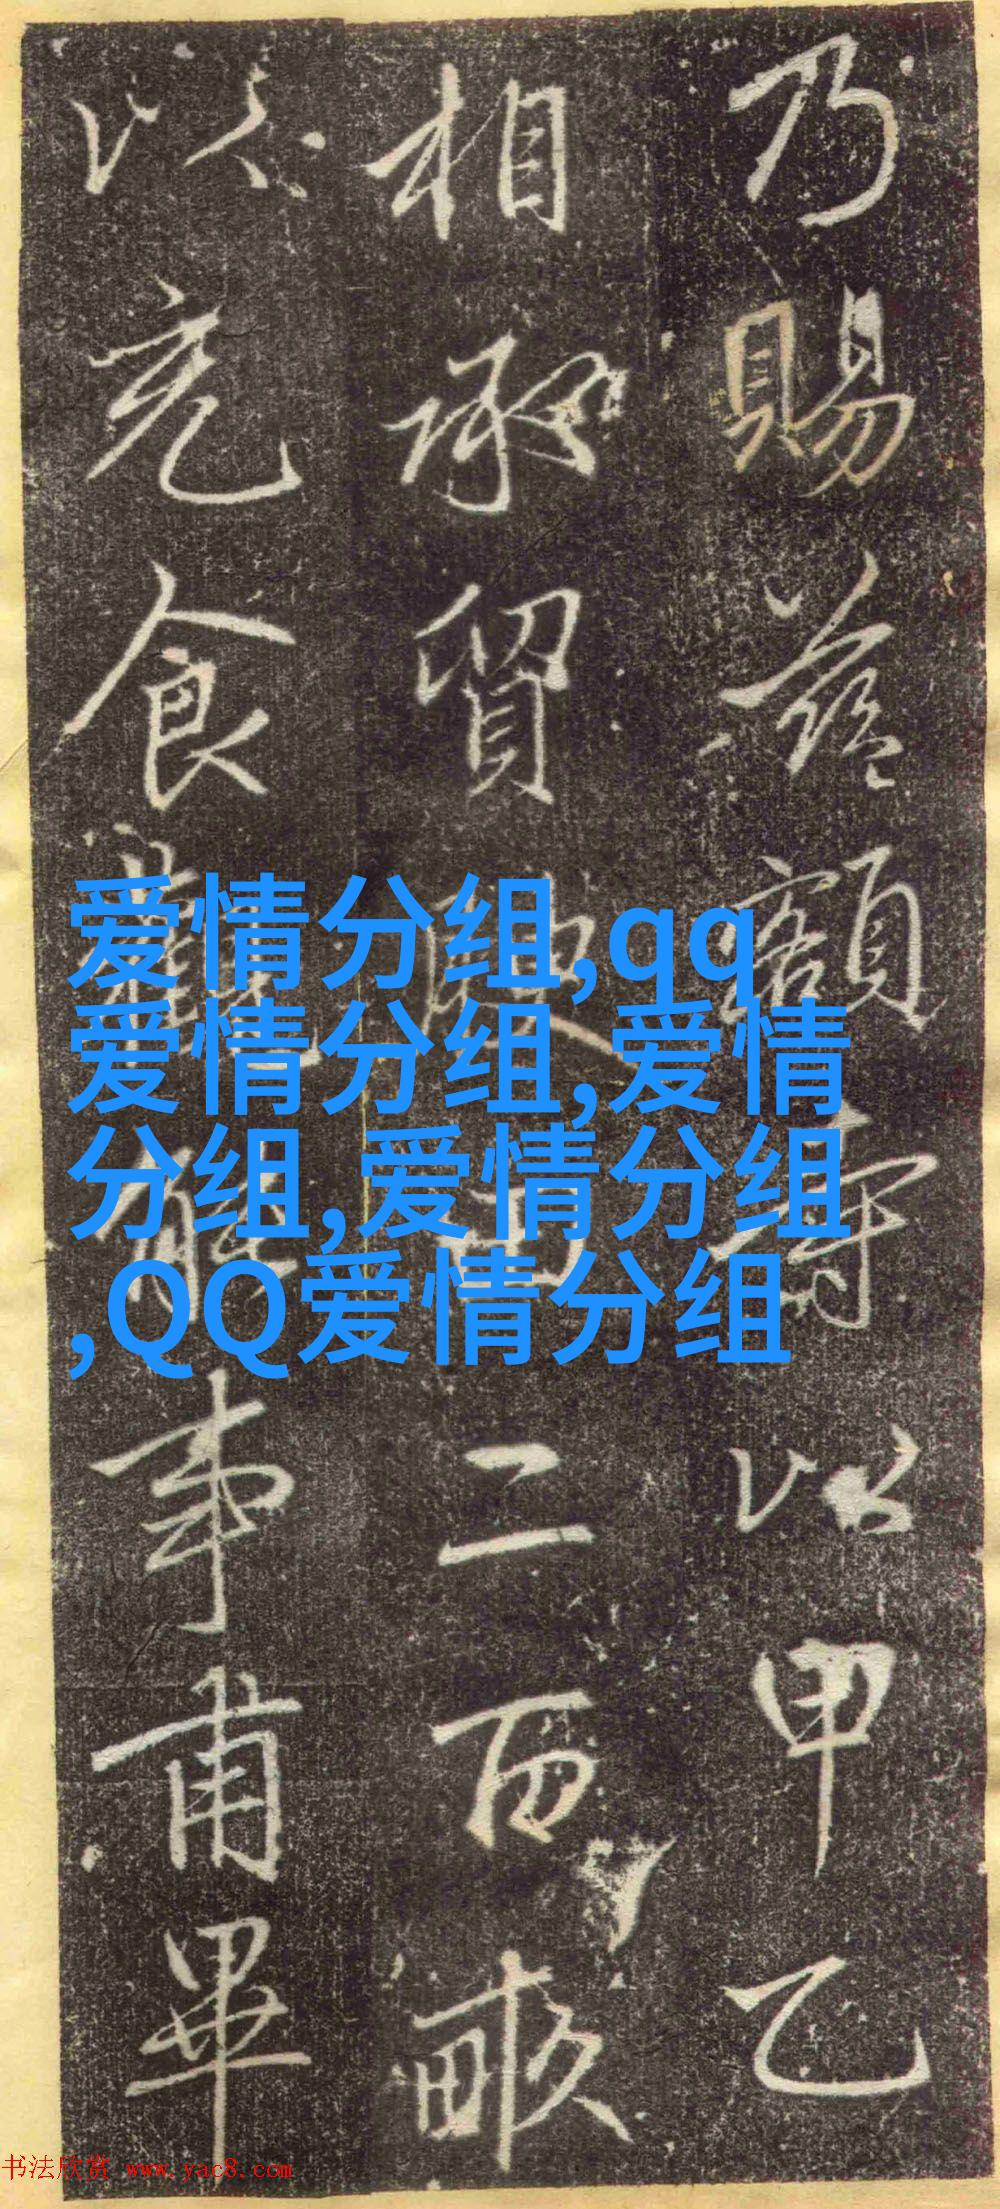 乃賜茲額寺以甲乙
相承貿腴田二百畝
以充食能事甫畢
爱情分组,qq
爱情分组,爱情
分组,爱情分组
,QQ爱情分组
书法欣赏 www.yac8.com